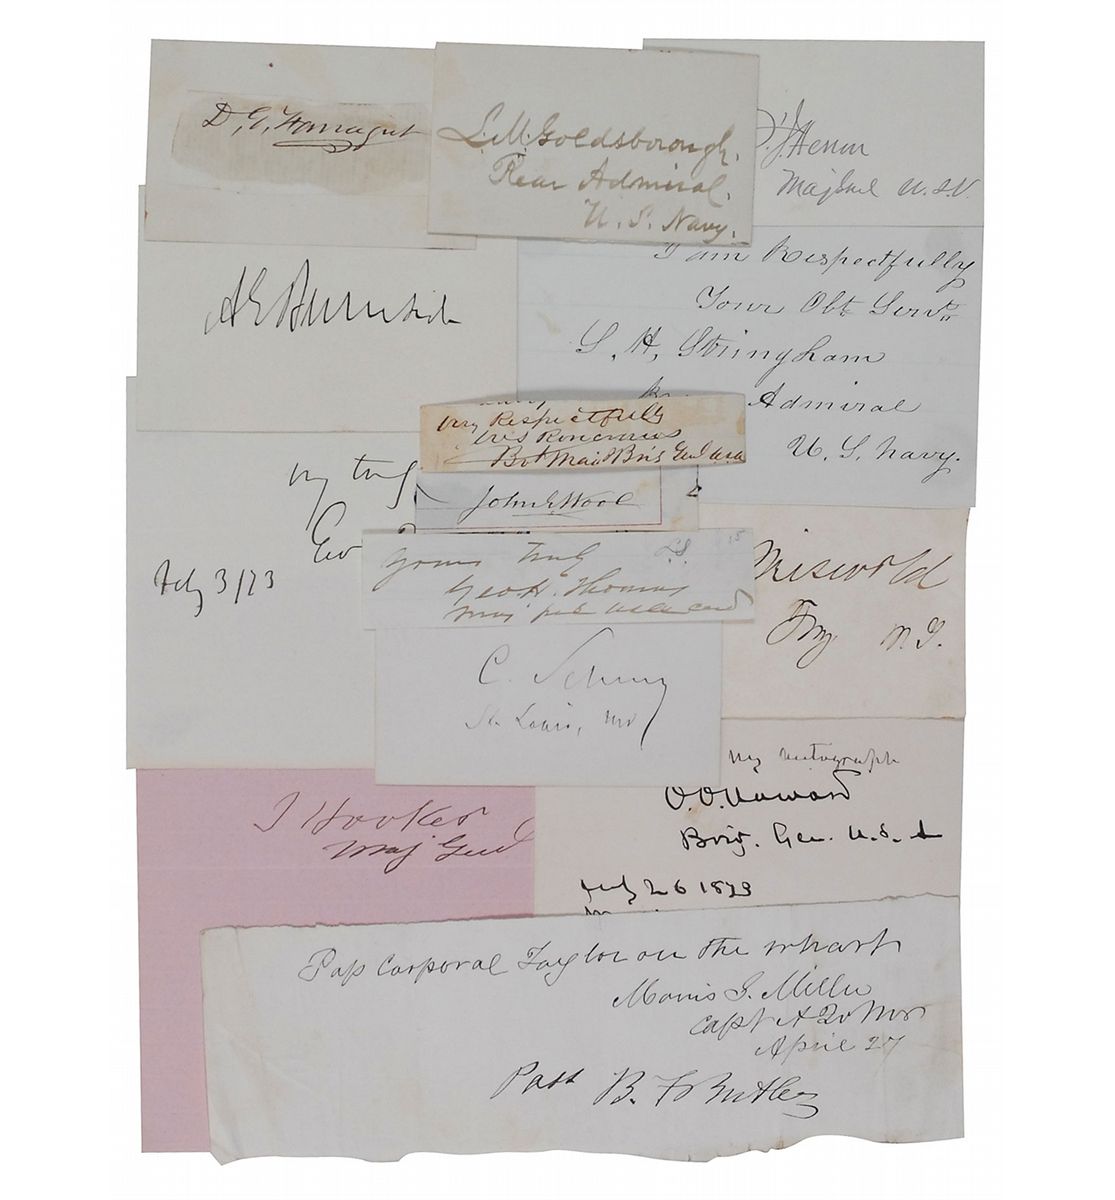 D. G. Farragut
L. M. Goldsborough.
Rear Admiral.
U. S. Navy.
F. J. Herron
Maj Genl U. S. V.
A E Burnside
I am Respectfully
Your Obt Servt
S. H. Stringham
Admiral
U. S. Navy.
Very Respectfully
W S Rosecrans
Bvt Maj & Brig Genl USA
John E Wool
Vy truly
Geo
July 3/73
Yours truly
Geo H. Thomas
Maj Genl USA
L.S. 15
Griswold
Troy N. Y.
C. Schurz
St. Louis, Mo
J Hooker
Maj Genl
my autograph
O. O. Howard
Brig. Gen. U. S. A
July 26 1873
Pass Corporal Taylor on the wharf
Morris S. Miller
Capt A Qr Mr
April 27
Pass B. F Butler